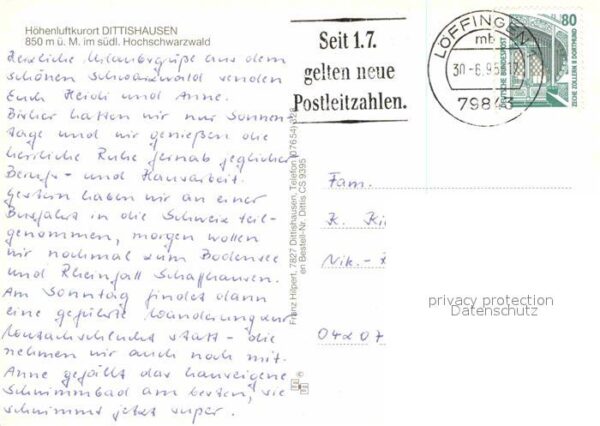 Höhenluftkurort DITTISHAUSEN
850 m ü. M. im südl. Hochschwarzwald
Herzliche Urlaubsgrüße aus dem
schönen Schwarzwald senden
Euch Heidi und Anne.
Bisher hatten wir nur Sonnen-
tage und wir genießen die
herrliche Ruhe fernab jeglicher
Berufs- und Hausarbeit.
Gestern haben wir an einer
Busfahrt in die Schweiz teil-
genommen, morgen wollen
wir nochmal zum Bodensee
und Rheinfall Schaffhausen.
Am Sonntag findet dann
eine geführte Wanderung zur
Wutachschlucht statt - die
nehmen wir auch noch mit.
Anne gefällt das hauseigene
Schwimmbad am besten, sie
schwimmt jetzt super.
Franz Hilpert, 7827 Dittishausen, Telefon (07654) 328
en Bestell-Nr. Dittis CS 9395
Seit 1.7.
gelten neue
Postleitzahlen.
LÖFFINGEN
mb
30-6.95-17
79843
80
DEUTSCHE BUNDESPOST
ZECHE ZOLLERN II DORTMUND
Fam.
K. Ki
Nik.-
04207
privacy protection
Datenschutz